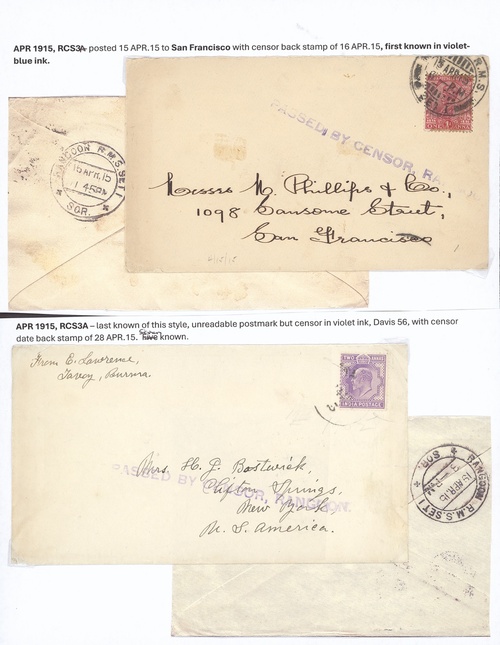 APR 1915, RCS3A posted 15 APR.15 to San Francisco with censor back stamp of 16 APR.15, first known in violet-
blue ink.
R.M.S.
PASSED BY CENSOR, RA
RANGOON R.M.S. SET 1
15 APR.15
SOR.
Messrs M. Phillips & Co.,
1098 Sansome Street,
San Francisco
APR 1915, RCS3A – last known of this style, unreadable postmark but censor in violet ink, Davis 56, with censor
date back stamp of 28 APR.15. Seven known.
From E. Lawrense,
Tavoy, Burma.
TWO ANNAS
INDIA POSTAGE
PASSED BY CENSOR, RANGOON.
Mrs. H. G. Bostwick,
Clifton Springs,
New York,
U. S. America.
RANGOON R.M.S. SET 1
APR.15
SOR.